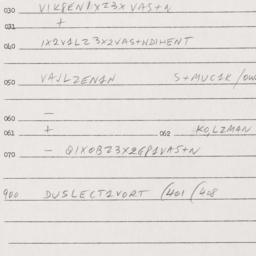 030 VIKPENIXZ3XVAS+N
031 +
040 1X2V1LZ3X2VAS+NDIHENT
050 VAJLZENAN S+MUC1K/
060 —
061 + 062 KOLZMAN
070 — Q1XOBZ3X2GP1VAS+N
900 DUSLECTAVORT (401 (408